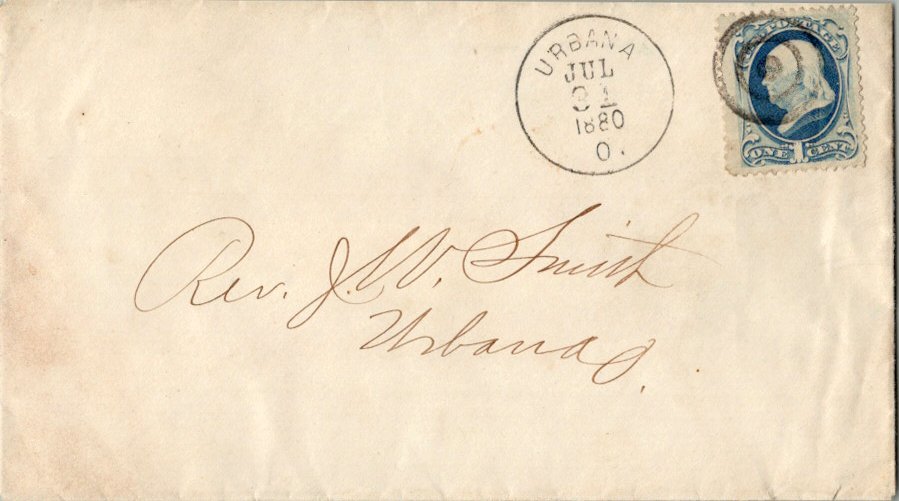 URBANA
JUL
31
1880
O.
POSTAGE
ONE 1 CENT
Rev. J. W. Smith
Urbana O.